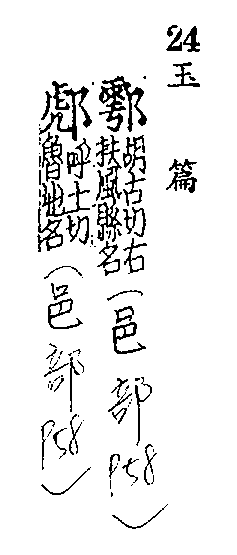 24玉篇
鄠胡古切右扶風縣名（邑部P58）
呼土切魯地名（邑部P58）